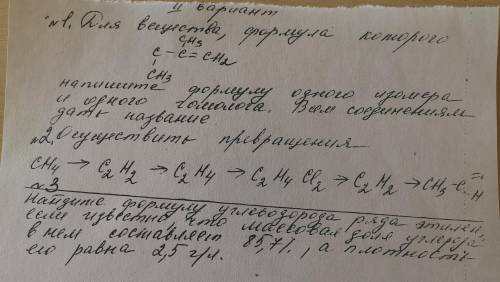 II вариант
№1. Для вещества, формула которого
CH3
C - C = CH2
CH3
напишите формулу одного изомера
и одного гомолога. Всем соединениям
дать название
№2. Осуществить превращения
CH4 → C2H2 → C2H4 → C2H4Cl2 → C2H2 → CH3-C H
№3
Найдите формулу углеводорода ряда этилен.
если известно, что массовая доля углерода
в нем составляет 85,7%, а плотность
его равна 2,5 г/л.